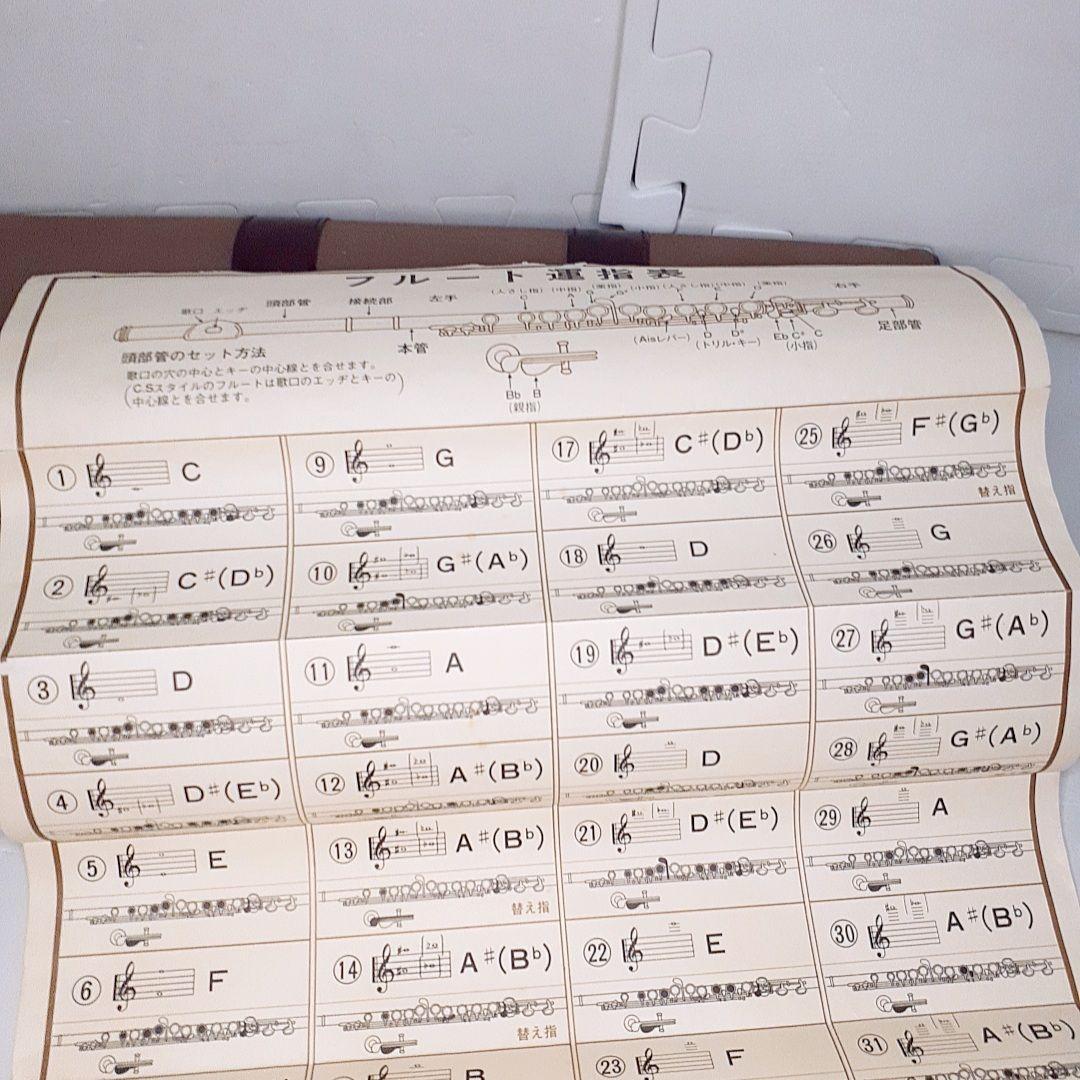 フルート運指表
歌口 エッヂ
頭部管
接続部
左手
(人さし指) (中指) (薬指) (小指) (人さし指) (中指) (薬指)
右手
C A G
本管
(Aisレバー)
D D#
(トリル・キー)
Eb C# C
(小指)
足部管
頭部管のセット方法
歌口の穴の中心とキーの中心線とを合せます。
(C.Sスタイルのフルートは歌口のエッヂとキーの
中心線とを合せます。)
Bb B
(親指)
① C
② C♯(D♭)
③ D
④ D♯(E♭)
⑤ E
⑥ F
⑨ G
⑩ G♯(A♭)
⑪ A
⑫ A♯(B♭)
⑬ A♯(B♭)
替え指
⑭ A♯(B♭)
替え指
B
⑰ C♯(D♭)
⑱ D
⑲ D♯(E♭)
⑳ D
㉑ D♯(E♭)
㉒ E
㉓ F
㉕ F♯(G♭)
替え指
㉖ G
㉗ G♯(A♭)
㉘ G♯(A♭)
㉙ A
㉚ A♯(B♭)
㉛ A♯(B♭)